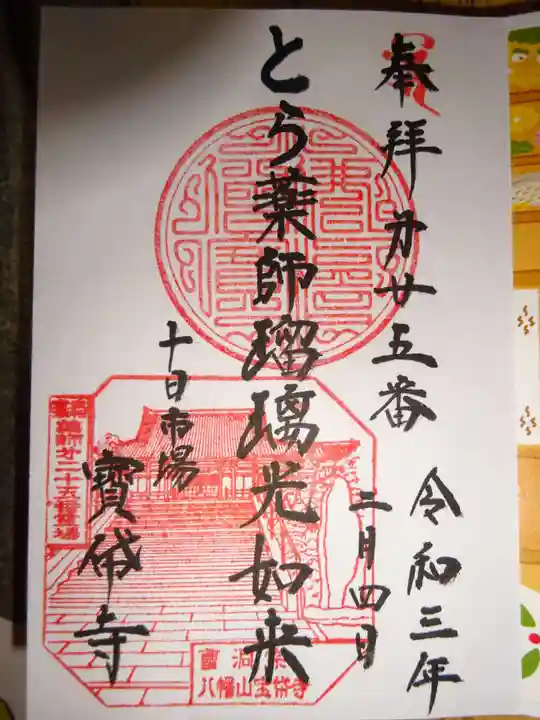 奉拝 第廿五番
令和三年
二月四日
とら薬師瑠璃光如来
十日市場
寳帒寺
薬師廿二十五番霊場
曹洞宗
八幡山宝帒寺